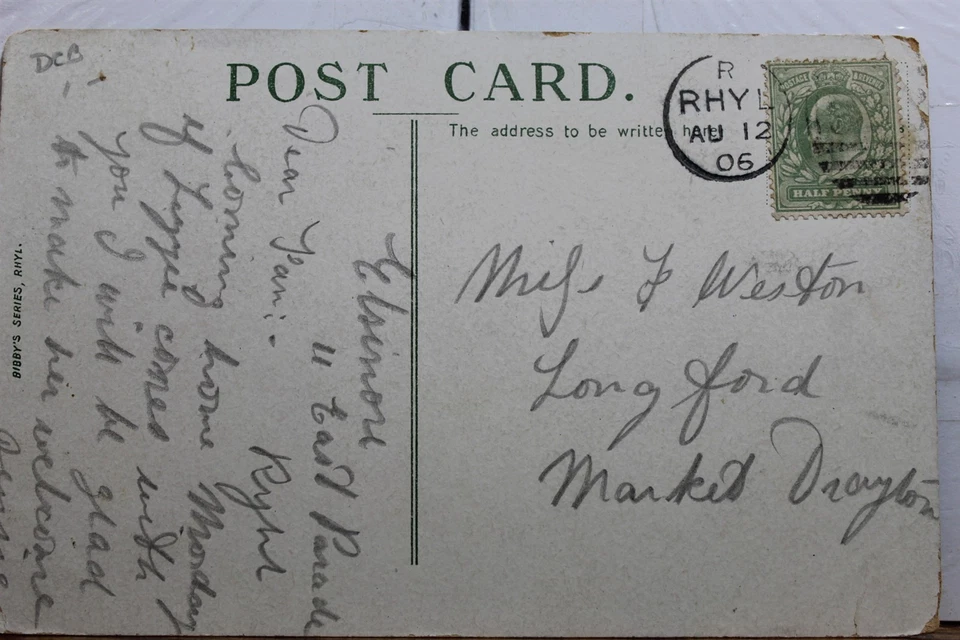 DCB
POST CARD.
The address to be written here
R
RHYL
AU 12
06
HALF PENNY
Elsinore
11 East Parade
Rhyl
Dear Fan:-
Coming home Monday
If Lizzie comes with
you I will be glad
to make her welcome
BIBBY'S SERIES, RHYL.
Miss F Weston
Longford
Market Drayton